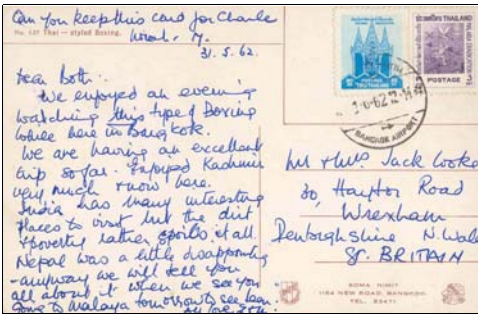 Can you keep this card for Charle
No. 137 Thai – styled Boxing.
31.5.62.
Dear Both:
We enjoyed an evening
watching this type of Boxing
while here in Bangkok.
We are having an excellent
trip so far. Enjoyed Kashmir
very much & now here.
India has many interesting
places to visit but the dirt
& poverty rather spoils it all.
Nepal was a little disappointing
– anyway we will tell you
all about it when we see you
going to Malaya tomorrow to see
THAILAND
POSTAGE
BANGKOK AIRPORT
Mr & Mrs. Jack
30, Road
Wrexham
Denbighshire N. Wales
BRITAIN
SOMA NIMIT
NEW ROAD, BANGKOK.
TEL.